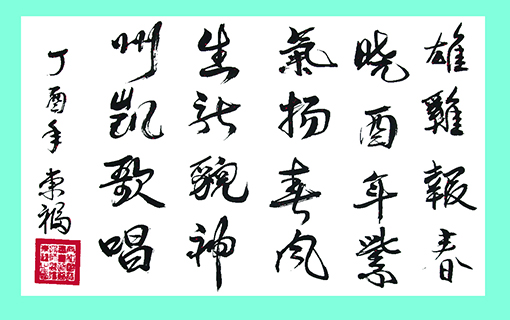 雄雞報春
晓酉年紫
氣扬春风
生新貌神
州凱歌唱
丁酉年 東福